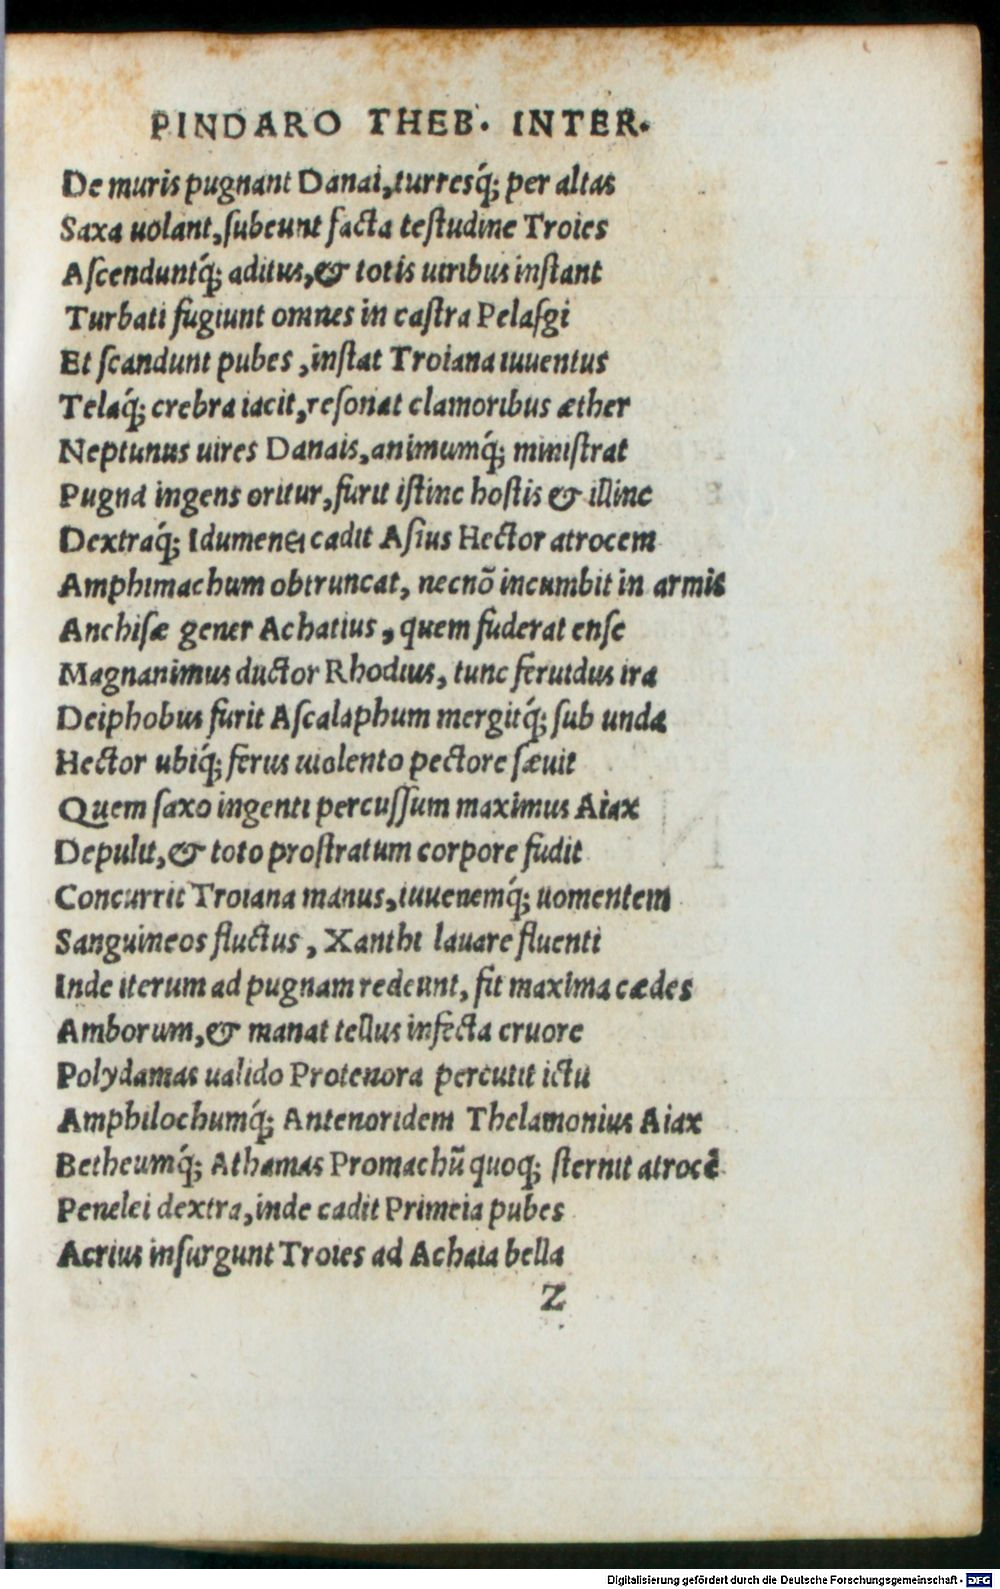 PINDARO THEB. INTER.
De muris pugnant Danai, turresq́; per altas
Saxa uolant, ſubeunt facta teſtudine Troies
Aſcenduntq́; aditus, & totis uiribus inſtant
Turbati fugiunt omnes in caſtra Pelaſgi
Et ſcandunt pubes, inſtat Troiana iuuentus
Telaq́; crebra iacit, reſonat clamoribus æther
Neptunus uires Danais, animumq́; miniſtrat
Pugna ingens oritur, furit iſtinc hoſtis & illinc
Dextraq́; Idumenei cadit Aſius Hector atrocem
Amphimachum obtruncat, necnō incumbit in armis
Anchiſæ gener Achatius, quem fuderat enſe
Magnanimus ductor Rhodius, tunc feruidus ira
Deiphobus furit Aſcalaphum mergitq́; ſub unda
Hector ubiq́; ferus uiolento pectore ſæuit
Quem ſaxo ingenti percuſſum maximus Aiax
Depulit, & toto proſtratum corpore fudit
Concurrit Troiana manus, iuuenemq́; uomentem
Sanguineos fluctus, Xanthi lauare fluenti
Inde iterum ad pugnam redeunt, fit maxima cædes
Amborum, & manat tellus infecta cruore
Polydamas ualido Protenora percutit ictu
Amphilochumq́; Antenoridem Thelamonius Aiax
Betheumq́; Athamas Promachū quoq; ſternit atrocē
Penelei dextra, inde cadit Primeia pubes
Acrius inſurgunt Troies ad Achaia bella
Z
Digitalisierung gefördert durch die Deutsche Forschungsgemeinschaft - DFG